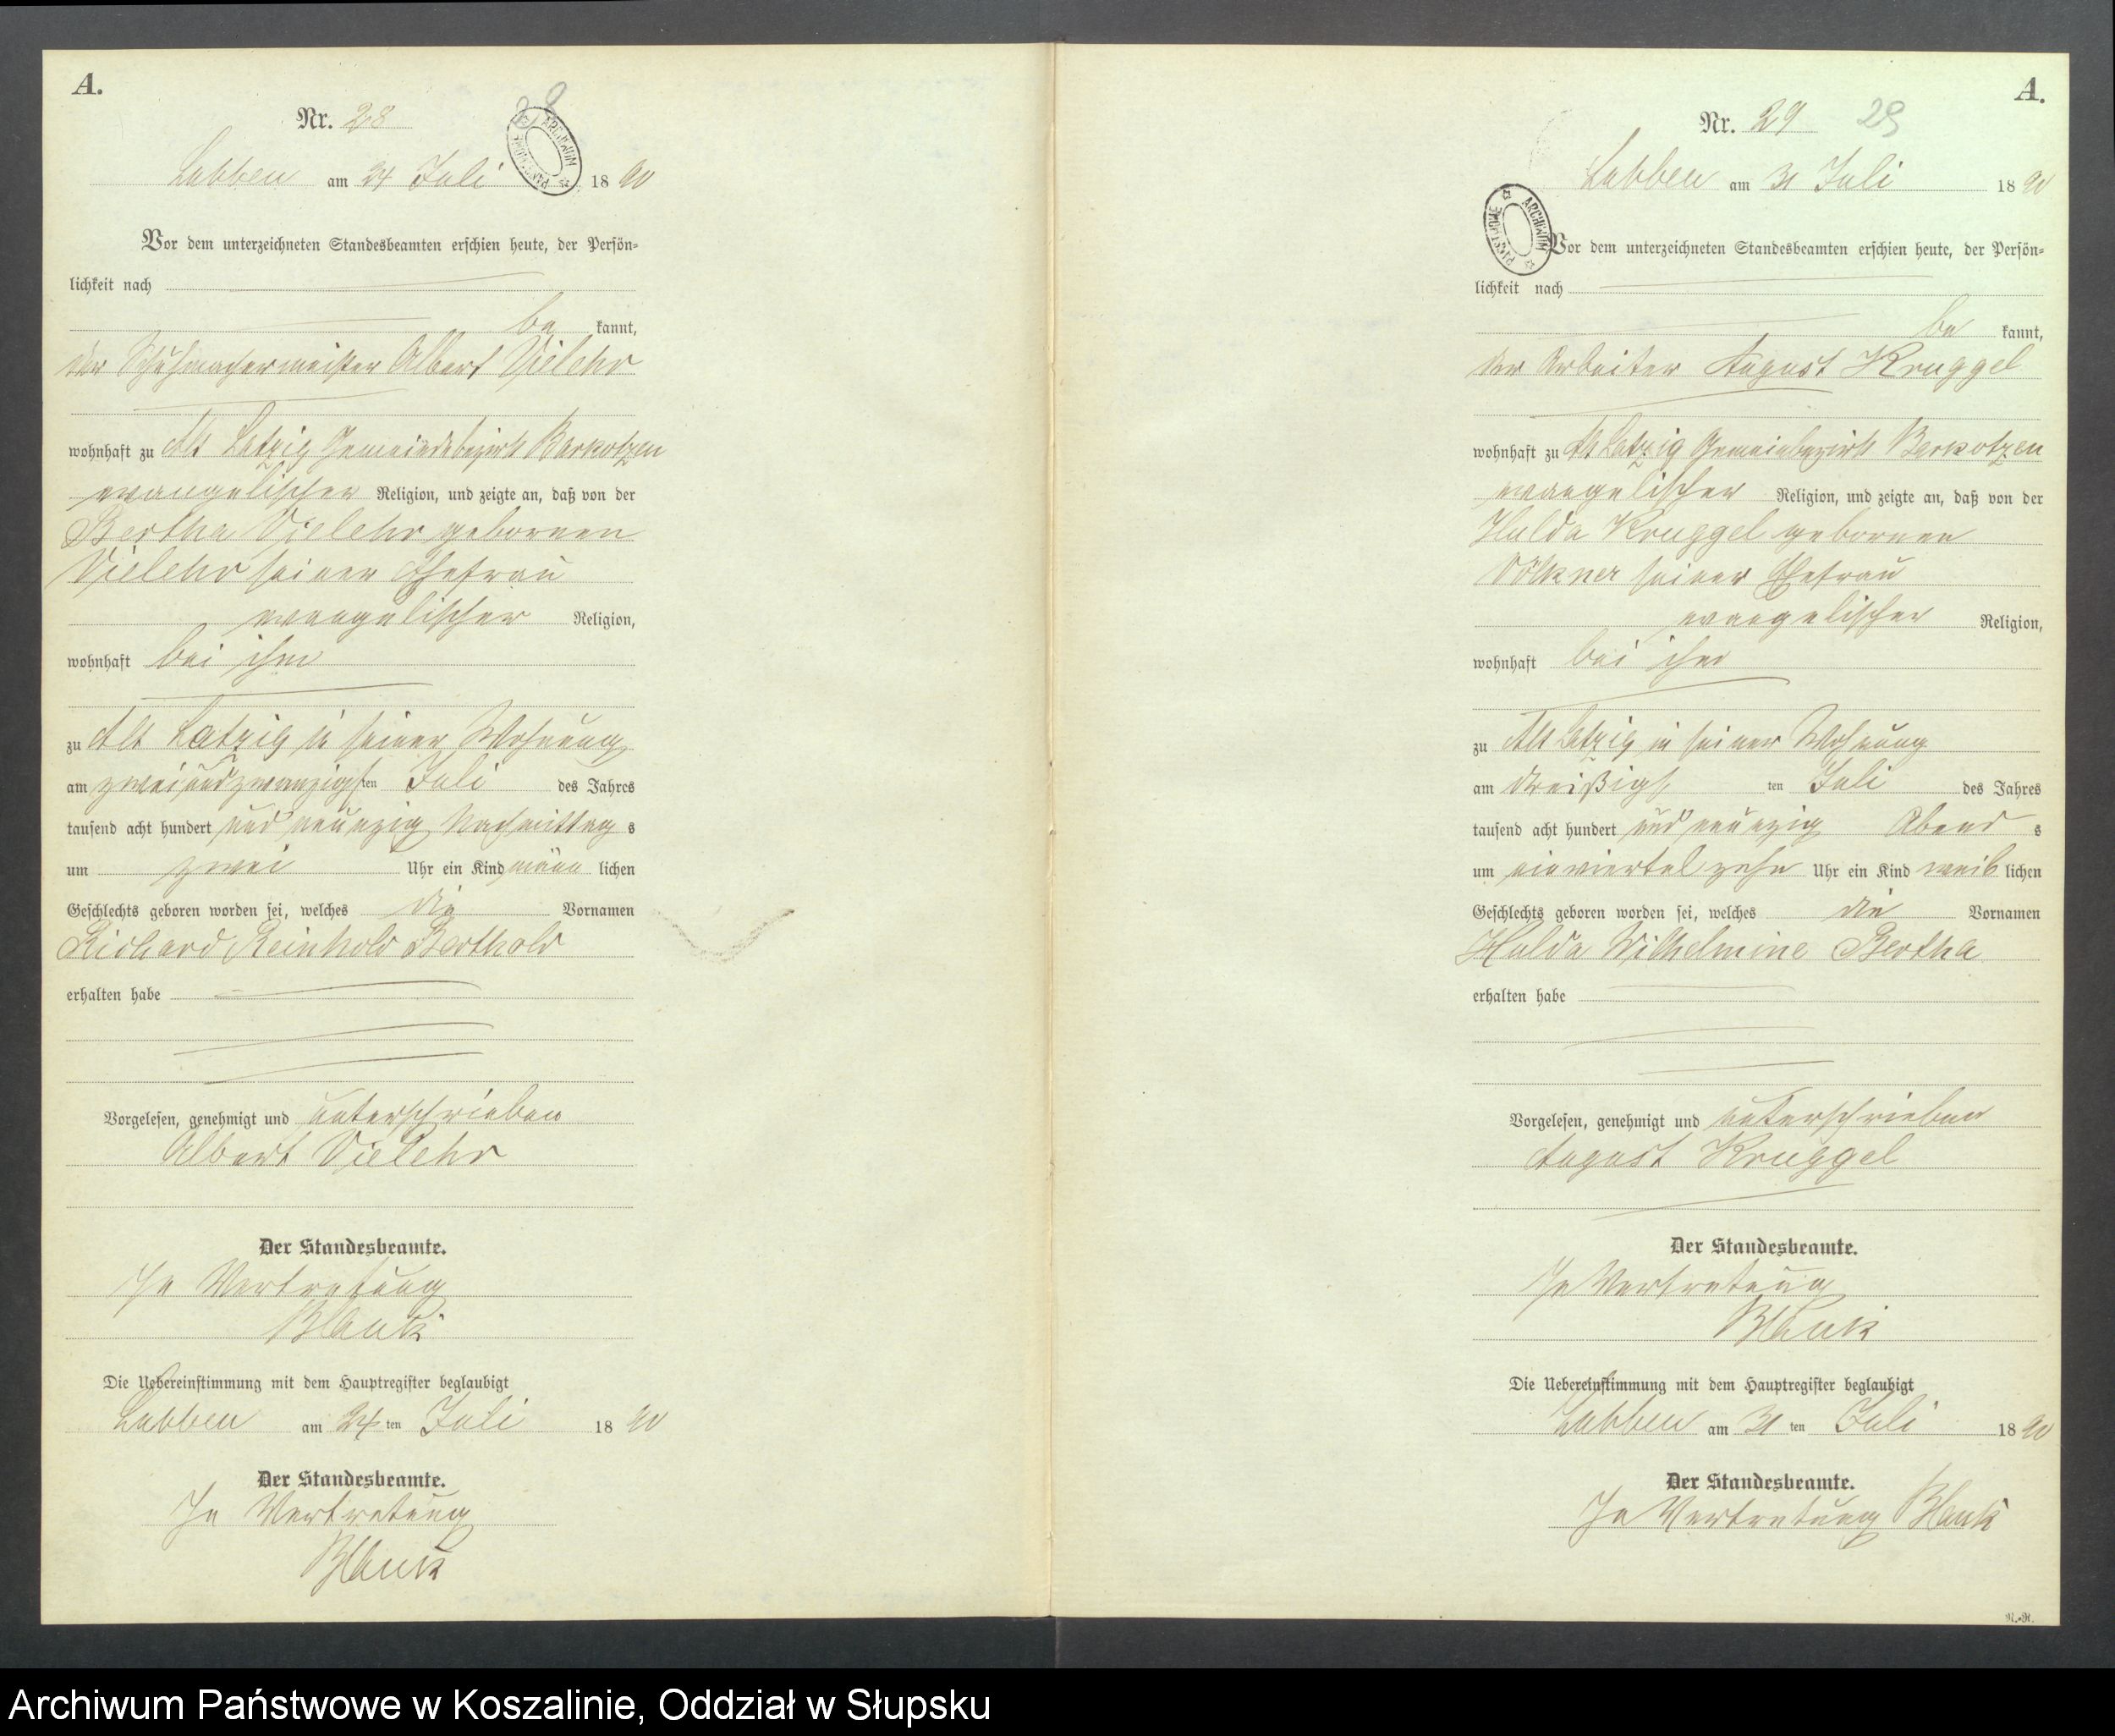 A.
Nr. 28
28
ARCHIWUM PAŃSTWOWE
Labben am 24 Juli 1890
Vor dem unterzeichneten Standesbeamten erschien heute, der Persön-
lichkeit nach
be kannt,
der Schuhmachermeister Albert Vielehr
wohnhaft zu Alt Latzig Gemeindebezirk Barkotzen
evangelischer Religion, und zeigte an, daß von der
Bertha Vielehr geborenen
Vielehr seiner Ehefrau
evangelischer Religion,
wohnhaft bei ihm
zu Alt Latzig in seiner Wohnung
am zweiundzwanzigsten Juli des Jahres
tausend acht hundert und neunzig Nachmittags
um zwei Uhr ein Kind männlichen
Geschlechts geboren worden sei, welches die Vornamen
Richard Reinhold Berthold
erhalten habe
Vorgelesen, genehmigt und unterschrieben
Albert Vielehr
Der Standesbeamte.
In Vertretung
Blank
Die Uebereinstimmung mit dem Hauptregister beglaubigt
Labben am 24ten Juli 1890
Der Standesbeamte.
In Vertretung
Blank
A.
Nr. 29
29
ARCHIWUM PAŃSTWOWE
Labben am 31 Juli 1890
Vor dem unterzeichneten Standesbeamten erschien heute, der Persön-
lichkeit nach
be kannt,
der Arbeiter August Kruggel
wohnhaft zu Alt Latzig Gemeinbezirk Barkotzen
evangelischer Religion, und zeigte an, daß von der
Hulda Kruggel geborenen
Völkner seiner Ehefrau
evangelischer Religion,
wohnhaft bei ihm
zu Alt Latzig in seiner Wohnung
am dreißigsten Juli des Jahres
tausend acht hundert und neunzig Abends
um einviertel zehn Uhr ein Kind weiblichen
Geschlechts geboren worden sei, welches die Vornamen
Hulda Wilhelmine Bertha
erhalten habe
Vorgelesen, genehmigt und unterschrieben
August Kruggel
Der Standesbeamte.
In Vertretung
Blank
Die Uebereinstimmung mit dem Hauptregister beglaubigt
Labben am 31ten Juli 1890
Der Standesbeamte.
In Vertretung Blank
R.-R.
Archiwum Państwowe w Koszalinie, Oddział w Słupsku